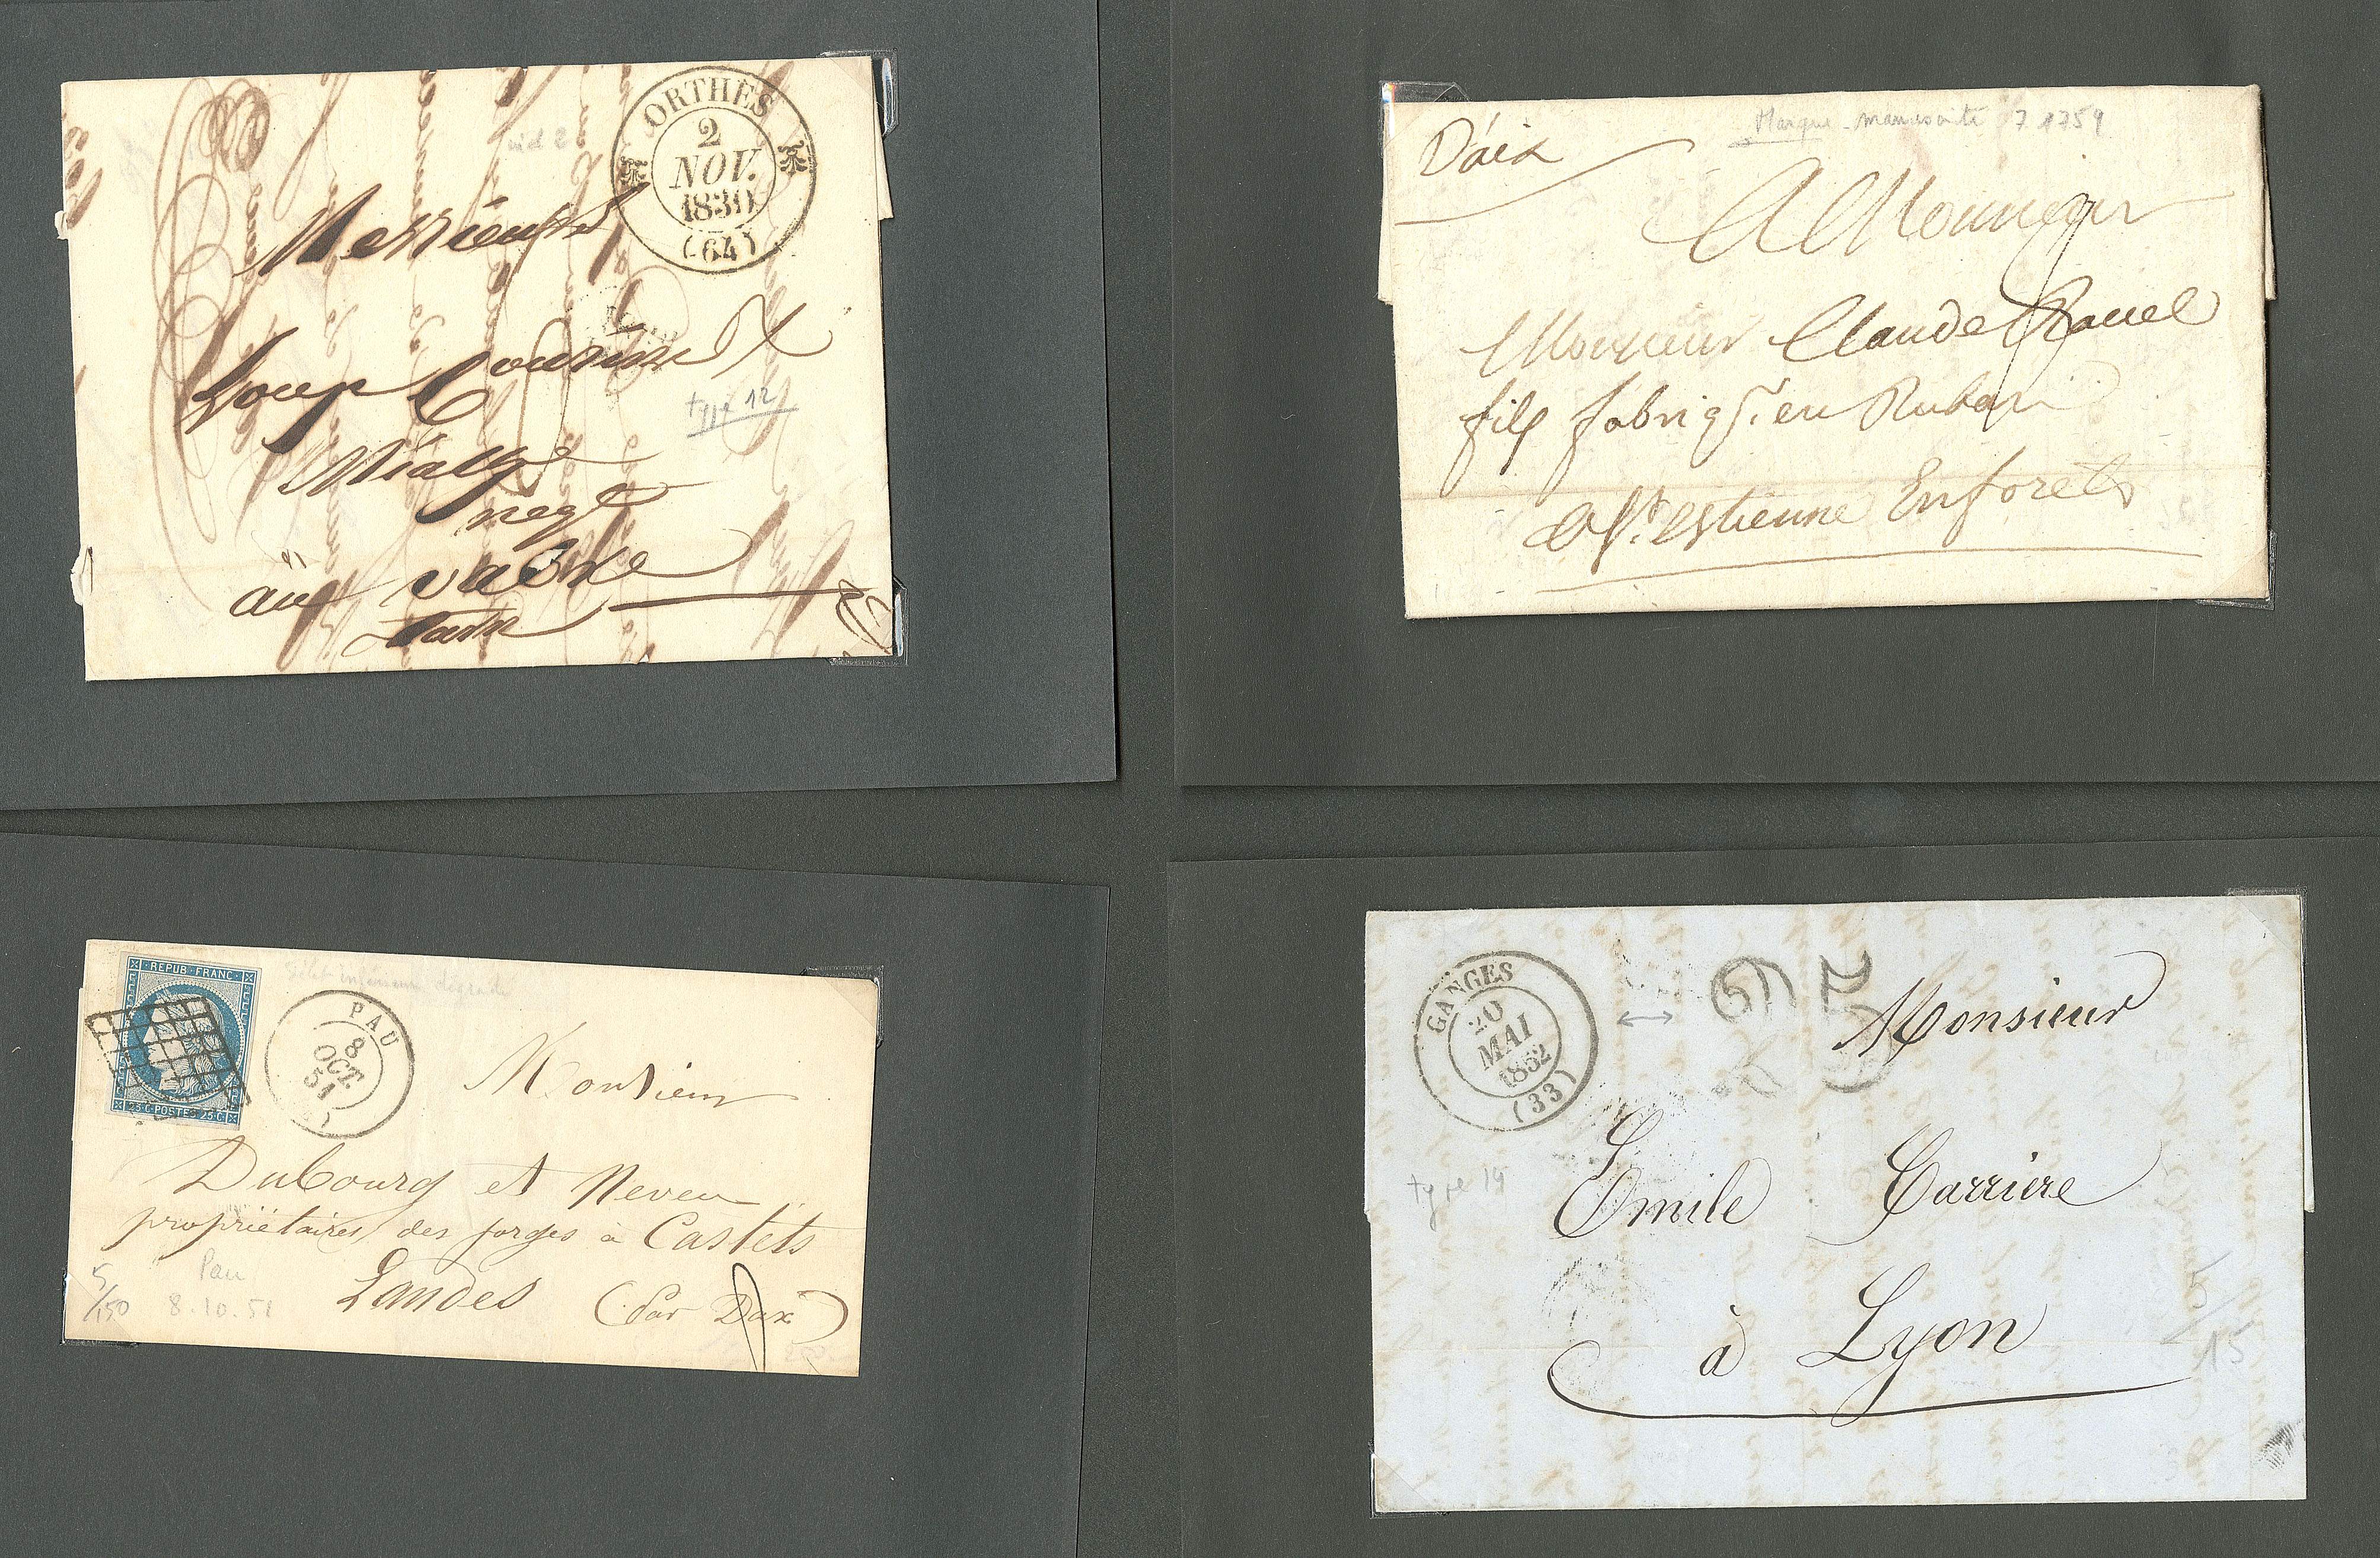 ORTHES
2
NOV.
1830
(64)
Messieurs
Loup
type 12
negt
au Vabre
Tarn
D'aix
Marque manuscrite 7 1759
A Monsieur
Monsieur Claude Ravel
fils fabriqt. en Ruban
a St. Estienne En forets
REPUB FRANC
25 C POSTES 25 C
PAU
8
OCT.
51
inférieur
Monsieur
Dubourg et Neveu
propriétaires des forges à Castets
Landes (par Dax)
5/150
Pau
8.10.51
GANGES
20
MAI
1852
(33)
25
Monsieur
type 14
Emile Carriere
à Lyon
5/15